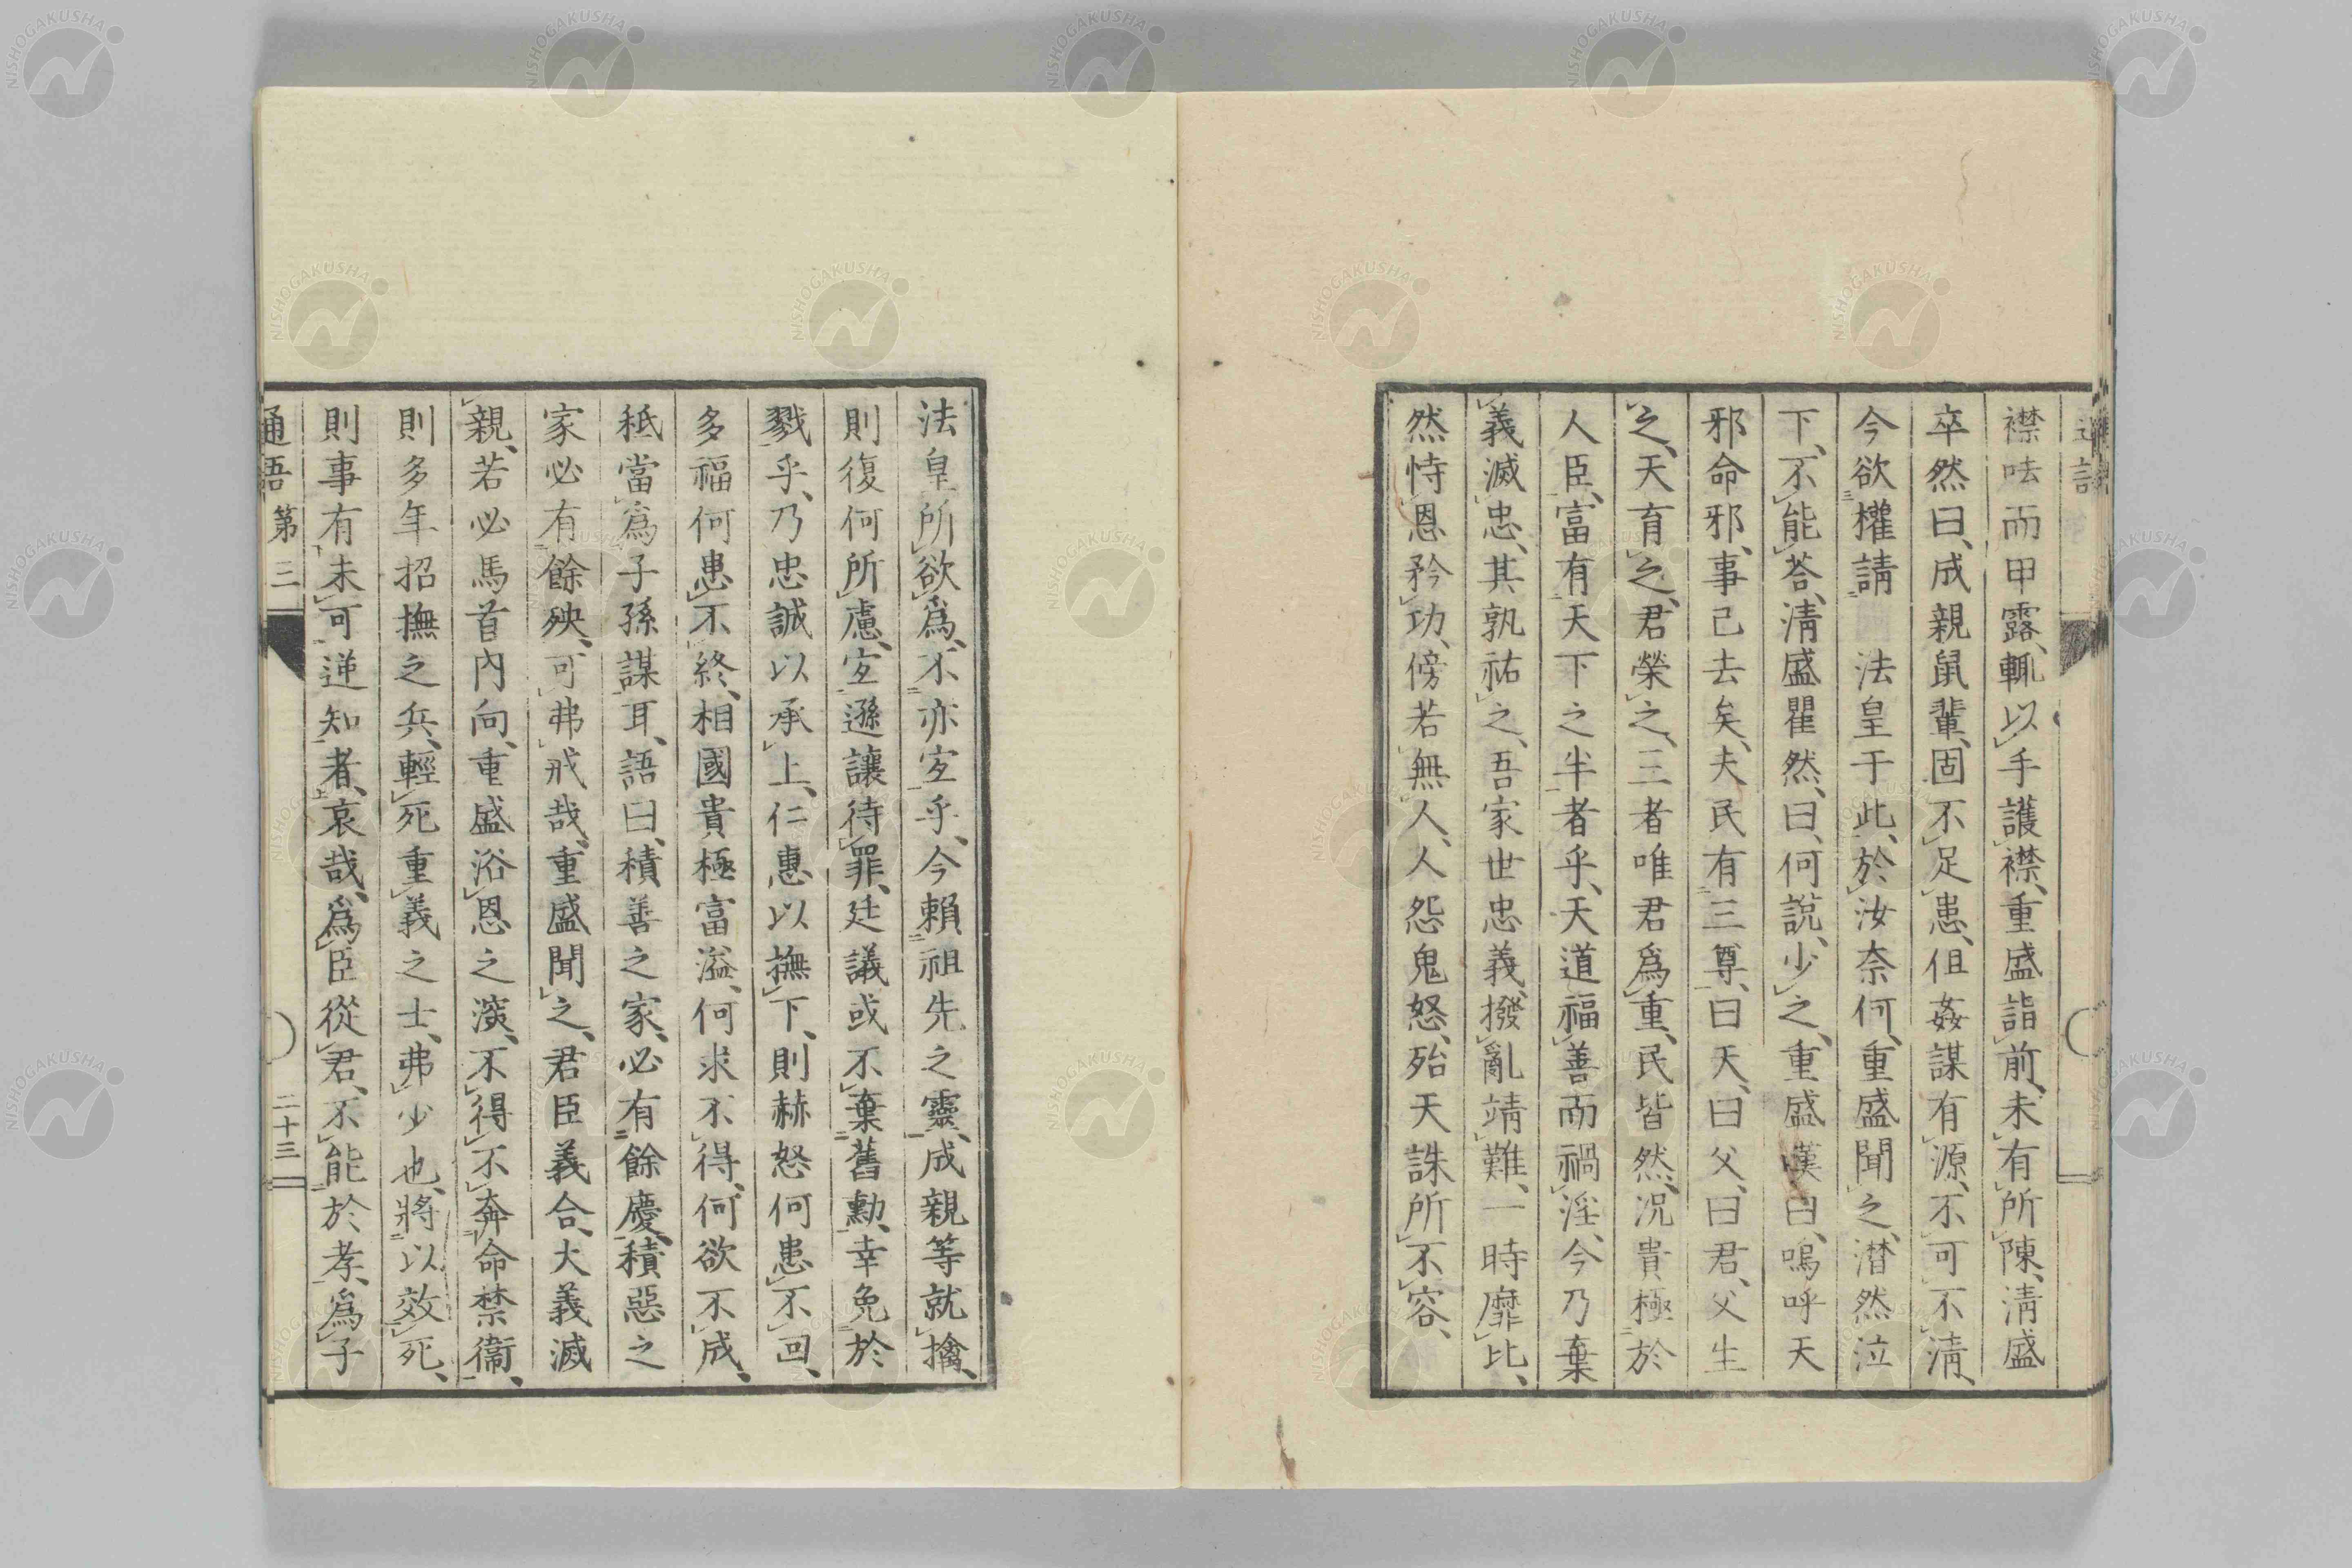 襟呿而甲露、輒以手護襟、重盛詣前、未有所陳、淸盛
卒然曰、成親鼠輩、固不足患、但姦謀有源、不可不淸、
今欲權請　法皇于此、於汝奈何、重盛聞之、潜然泣
下、不能荅、淸盛瞿然、曰、何說、少之、重盛嘆曰、嗚呼天
邪命邪、事已去矣、夫民有三尊、曰天、曰父、曰君、父生
之、天育之、君榮之、三者唯君爲重、民皆然、況貴極於
人臣、富有天下之半者乎、天道福善而禍淫、今乃棄
義滅忠、其孰祐之、吾家世忠義、撥亂靖難、一時靡比、
然恃恩矜功、傍若無人、人怨鬼怒、殆天誅所不容、
法皇所欲爲、不亦宜乎、今賴祖先之靈、成親等就擒、
則復何所慮、宜遜讓待罪、廷議或不棄舊勳、幸免於
戮乎、乃忠誠以承上、仁惠以撫下、則赫怒何患不回、
多福何患不終、相國貴極富溢、何求不得、何欲不成、
秪當爲子孫謀耳、語曰、積善之家、必有餘慶、積惡之
家必有餘殃、可弗戒哉、重盛聞之、君臣義合、大義滅
親、若必馬首內向、重盛浴恩之深、不得不奔命禁衞、
則多年招撫之兵、輕死重義之士、弗少也、將以效死、
則事有未可逆知者、哀哉、爲臣從君、不能於孝、爲子
通語第三　二十三
NISHOGAKUSHA